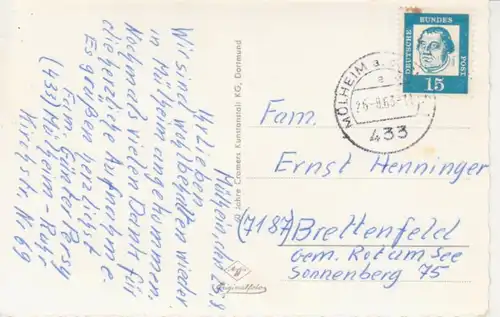 Mülheim, den 25.8
Ihr Lieben
Wir sind wohlbehalten wieder
in Mülheim angekommen.
Nochmals vielen Dank für
die herzliche Aufnahme.
Es grüßen herzlichst
Fam. Günter
(433) Mülheim-Ruhr
Kirchstr. Nr 69
60 Jahre Cramers Kunstanstalt KG, Dortmund
Originalfoto
DEUTSCHE BUNDES POST
15
MÜLHEIM a. d.
a
26.-8.63-11
433
Fam.
Ernst Henninger
(7187) Brettenfeld
Gem. Rot am See
Sonnenberg 75